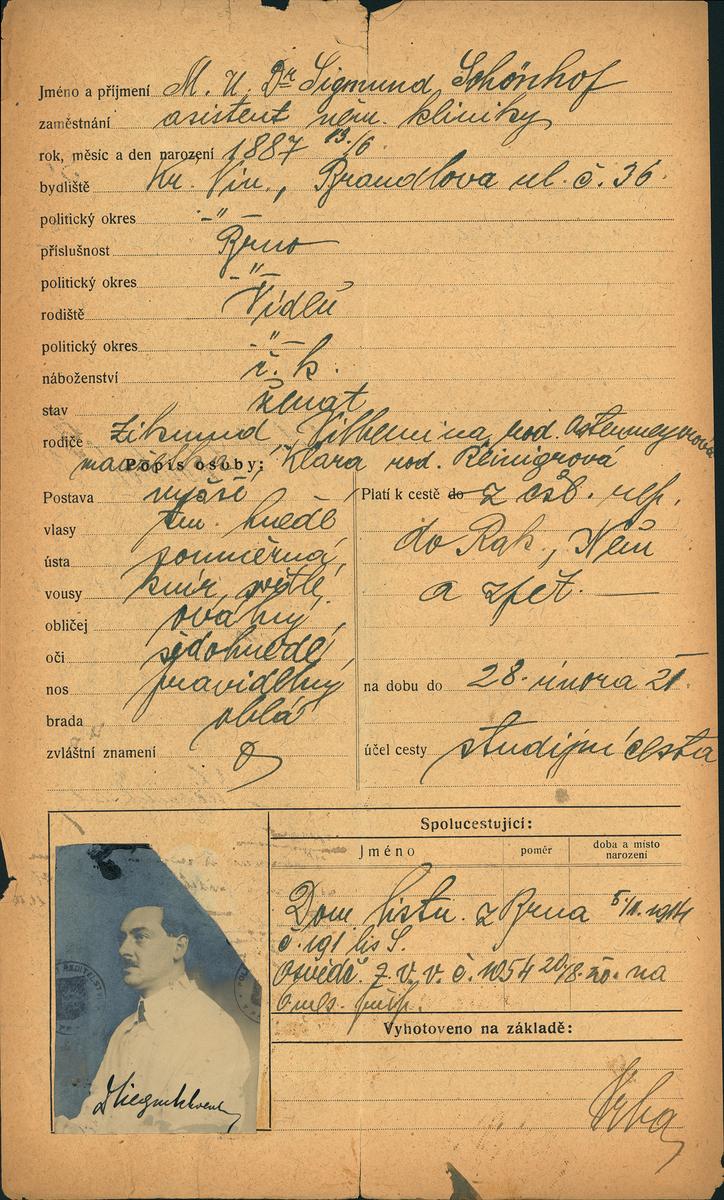 Jméno a příjmení M. U. Dr Sigmund Schönhof
zaměstnání asistent něm. kliniky
rok, měsíc a den narození 1887 13/6.
bydliště Kr. Vin., Brandlova ul. č. 36.
politický okres -"-
příslušnost Brno
politický okres -"-
rodiště Vídeň
politický okres -"-
náboženství ř. k.
stav ženat
rodiče Zikmund, Vilhemina, rod. Ostermeyerová
manželka Klara rod. Reinigrová
Popis osoby:
Postava vyšší
vlasy tm. hnědé
ústa souměrná,
vousy knír, světlé,
obličej oválný,
oči šedohnědé,
nos pravidelný
brada oblá
zvláštní znamení
Platí k cestě do z čsl. rep.
do Rak., Něm
a zpět. —
na dobu do 28. února 21.
účel cesty studijní cesta
Spolucestující:
Jméno
poměr
doba a místo narození
Dom. listu. z Brna 5/11. 1914
č. 191 lis S.
Osvědč. z v. v. č. 1054 20/8. 20. na
Vyhotoveno na základě:
Vrba